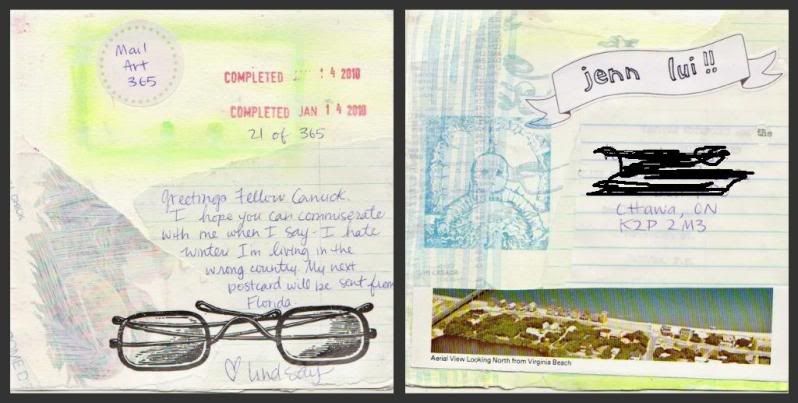 Mail
Art
365
COMPLETED JAN 14 2010
COMPLETED JAN 14 2010
21 of 365
Greetings Fellow Canuck.
I hope you can commiserate
with me when I say - I hate
winter. I'm living in the
wrong country. My next
postcard will be sent from
Florida.
♡ Lindsay
jenn lui!!
the
Ottawa, ON
K2D 2M3
Aerial View Looking North from Virginia Beach